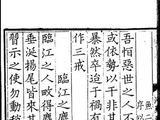 吾恆惡世之人不
或依勢以干非其
暴然卒迨于禍有
作三戒
臨江之麋
臨江之人畋得麋
垂涎揚尾皆來其
習示之使勿動稍